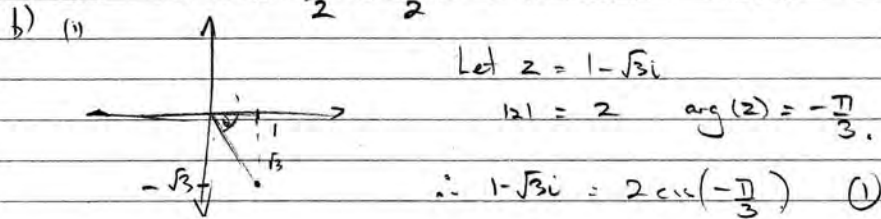 2 2
b) (i)
Let z = 1 - √3i
|z| = 2 arg(z) = -π/3.
1
√3
-√3
∴ 1-√3i = 2 cis(-π/3) ①